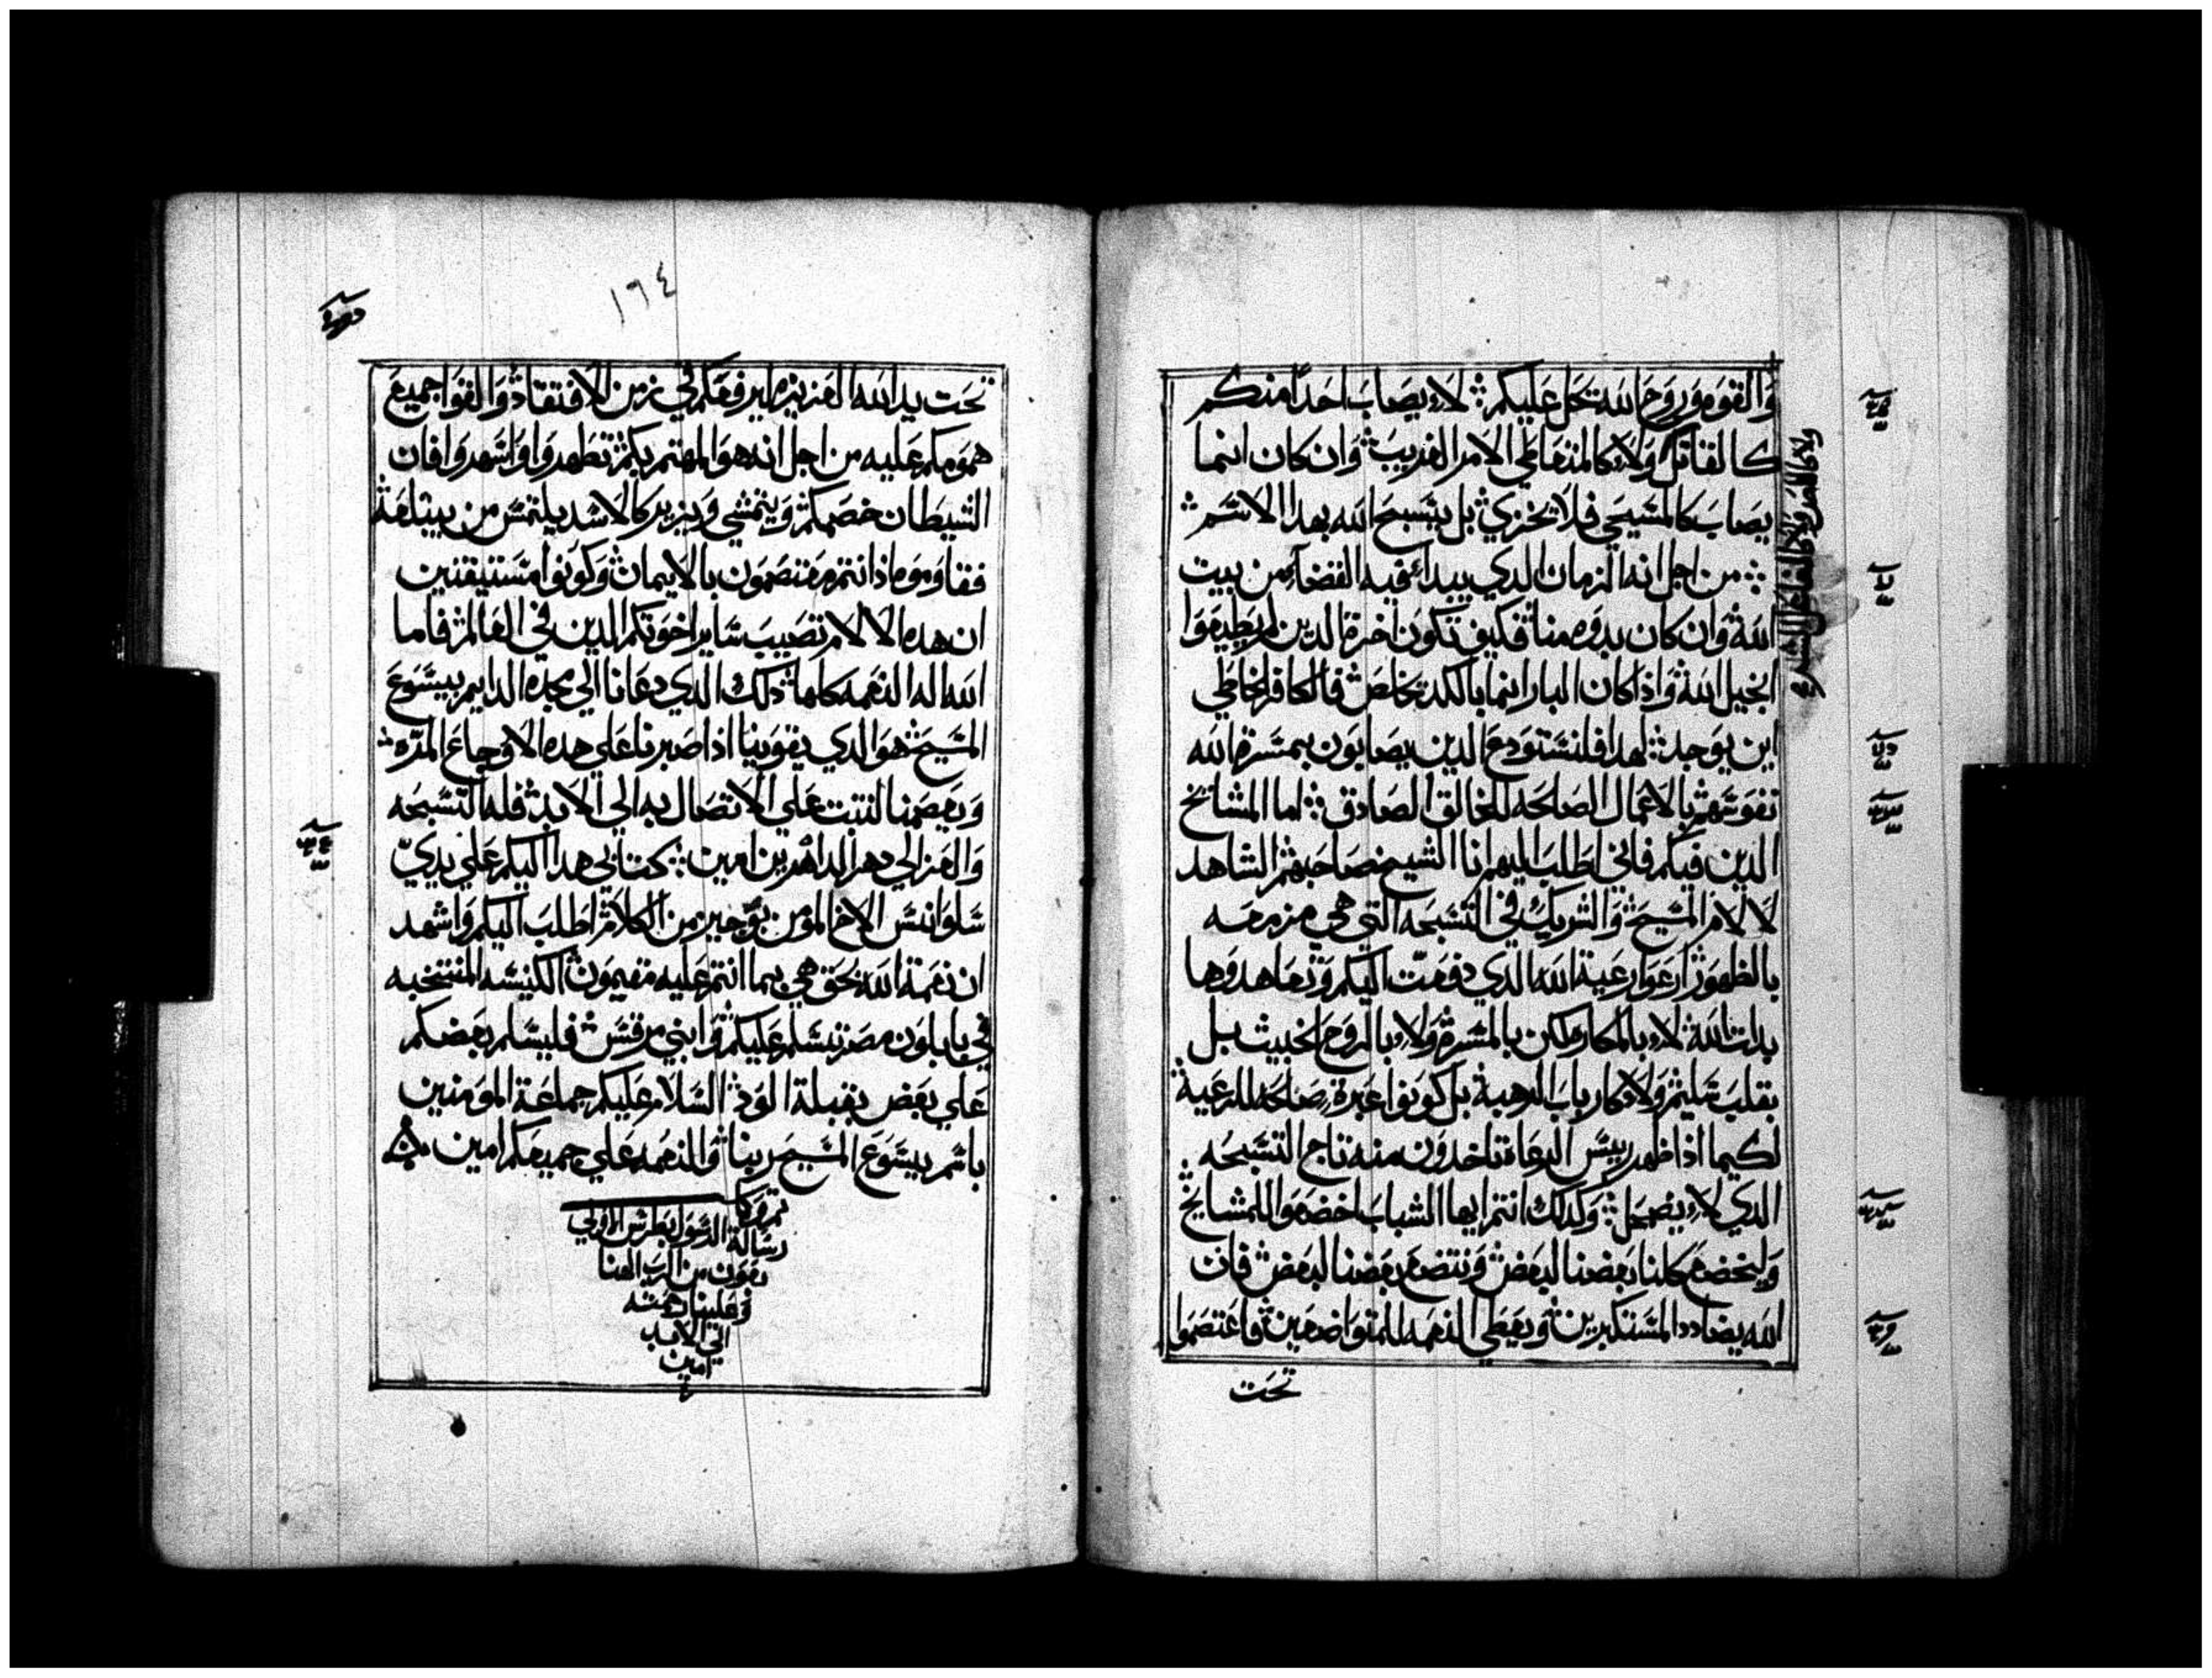 والقوه وروح الله تحل عليكم لا يصاب احدا منكم
كالقاتل ولا كالمتعاطي الامر الغريب وان كان انما
يصاب كالمسيحي فلا يخزي بل يتسبح الله بهدا الاسم
من اجل انه الزمان الدي يبدا فيه القضا من بيت
الله وان كان بدوه منا فكيف تكون اخرة الدين لم يطيعوا
انجيل الله واذا كان البار انما بالكد تخلص فالكافر الخاطي
اين يوجد لهدا فلنستودع الدين يصابون بمسرة الله
نفوسهم بالاعمال الصالحه للخالق الصادق اما المشايخ
الدين فيكم فاني اطلب اليهم انا الشيخ صاحبهم الشاهد
لالام المسيح والشريك في التسبحه التي هي مزمعه
بالظهور ارعوا رعية الله الدي دفعت اليكم وتعاهدوها
بدات الله لا بالمكاره لكن بالمسرة ولا بالروح الخبيث بل
بقلب سليم ولا كارباب الرهبة بل كونوا عبرة صالحة للرعية
لكيما اذا ظهر رييس الرعاة تاخدون منه تاج التسبحه
الدي لا يضمحل وكدلك انتم ايها الشباب اخضعوا للمشايخ
وليخضع كلنا بعضنا لبعض ونتضع بعضنا لبعض فان
الله يضادد المستكبرين ويعطي النعمه للمتواضعين فاعتصموا
تحت
١٦٤
تحت يد الله العزيزه ليرفعكم في زمن الافتقاد والقوا جميع
همومكم عليه من اجل انه هو المهتم بكم تطهروا واسهروا فان
الشيطان خصمكم ويتمشي ويزير كالاسد يلتمس من يبتلعة
فقاوموه اذ انتم معتصمون بالايمان وكونوا مستيقنين
ان هده الالام تصيب ساير اخوتكم الدين في العالم فاما
الله اله النعمه كلها دلك الدي دعانا الي مجده الدايم بيسوع
المسيح هو الدي يقوينا اذا صبرنا علي هده الاوجاع المره
ويعصمنا لنتبت علي الاتصال به الي الابد فله التسبحه
والعز الي دهر الداهرين امين كتابي هدا اليكم علي يدي
سلوانس الاخ المومن بوجيز من الكلام اطلب اليكم واشهد
ان نعمة الله بحق هي بما انتم عليه مقيمون الكنيسه المنتخبه
في بابلون مصر تسلم عليكم وابني مرقس فليسلم بعضكم
علي بعض بقبلة الود السلام عليكم جماعة المومنين
باسم يسوع المسيح ربنا والنعمه علي جميعكم امين
تم وكمل
رسالة الرسول بطرس الاولي
بعون من الرب الهنا
وعلينا رحمته
الي الابد
امين